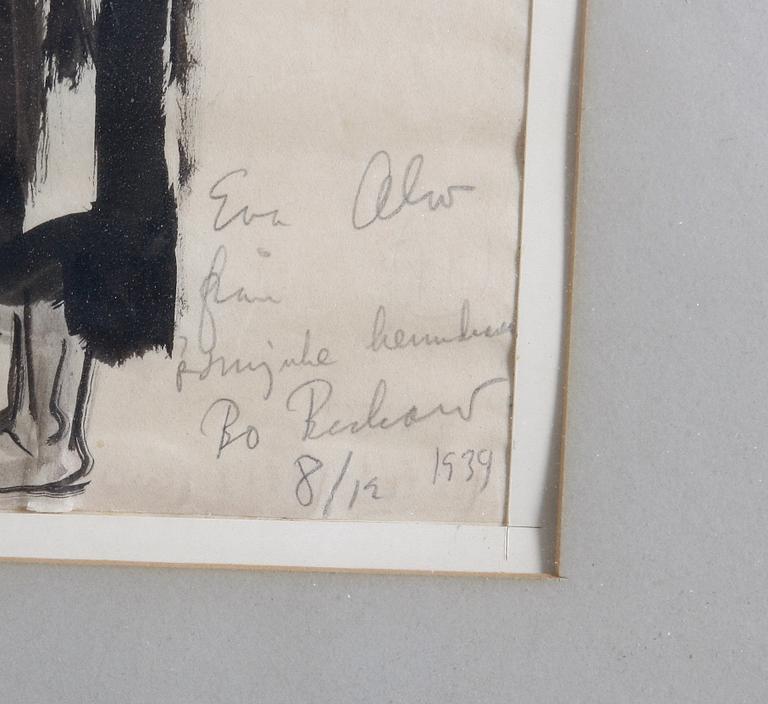 Eva Alw
från
Bo Beskow
8/12 1939